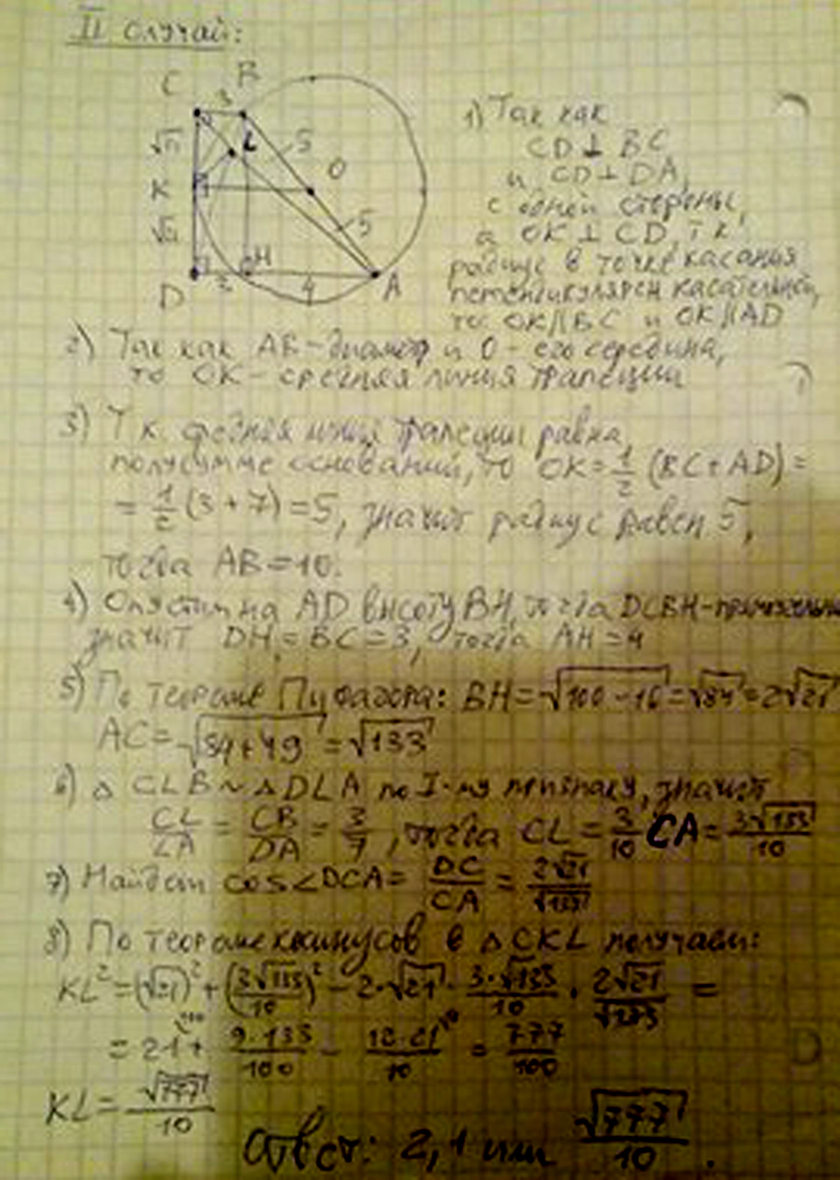 II случай:
C 3 B
√21 L 5
K O
√21 5
H
D 3 4 A
1) Так как
CD ⊥ BC
и CD ⊥ DA,
с одной стороны,
а OK ⊥ CD, т.к.
радиус в точке касания
перпендикулярен касательной,
то OK || BC и OK || AD
2) Так как AB - диаметр и O - его середина,
то OK - средняя линия трапеции
3) Т.к. средняя линия трапеции равна
полусумме оснований, то OK = 1/2 (BC + AD) =
= 1/2 (3 + 7) = 5, значит радиус равен 5,
тогда AB = 10.
4) Опустим на AD высоту BH, тогда DCBH -
значит DH = BC = 3, тогда AH = 4
5) По теореме Пифагора: BH = √100 - 16 = √84 = 2√21
AC = √84 + 49 = √133
6) △ CLB ~ △ DLA по I-му признаку, значит
CL/LA = CB/DA = 3/7, тогда CL = 3/10 CA = 3√133/10
7) Найдем cos∠DCA = DC/CA = 2√21/√133
8) По теореме косинусов в △ CKL получаем:
KL² = (√21)² + (3√133/10)² - 2·√21 · 3·√133/10 · 2√21/√133 =
= 21 + 9·133/100 - 12·21/10 = 777/100
KL = √777/10
Ответ: 2,1 или √777/10.